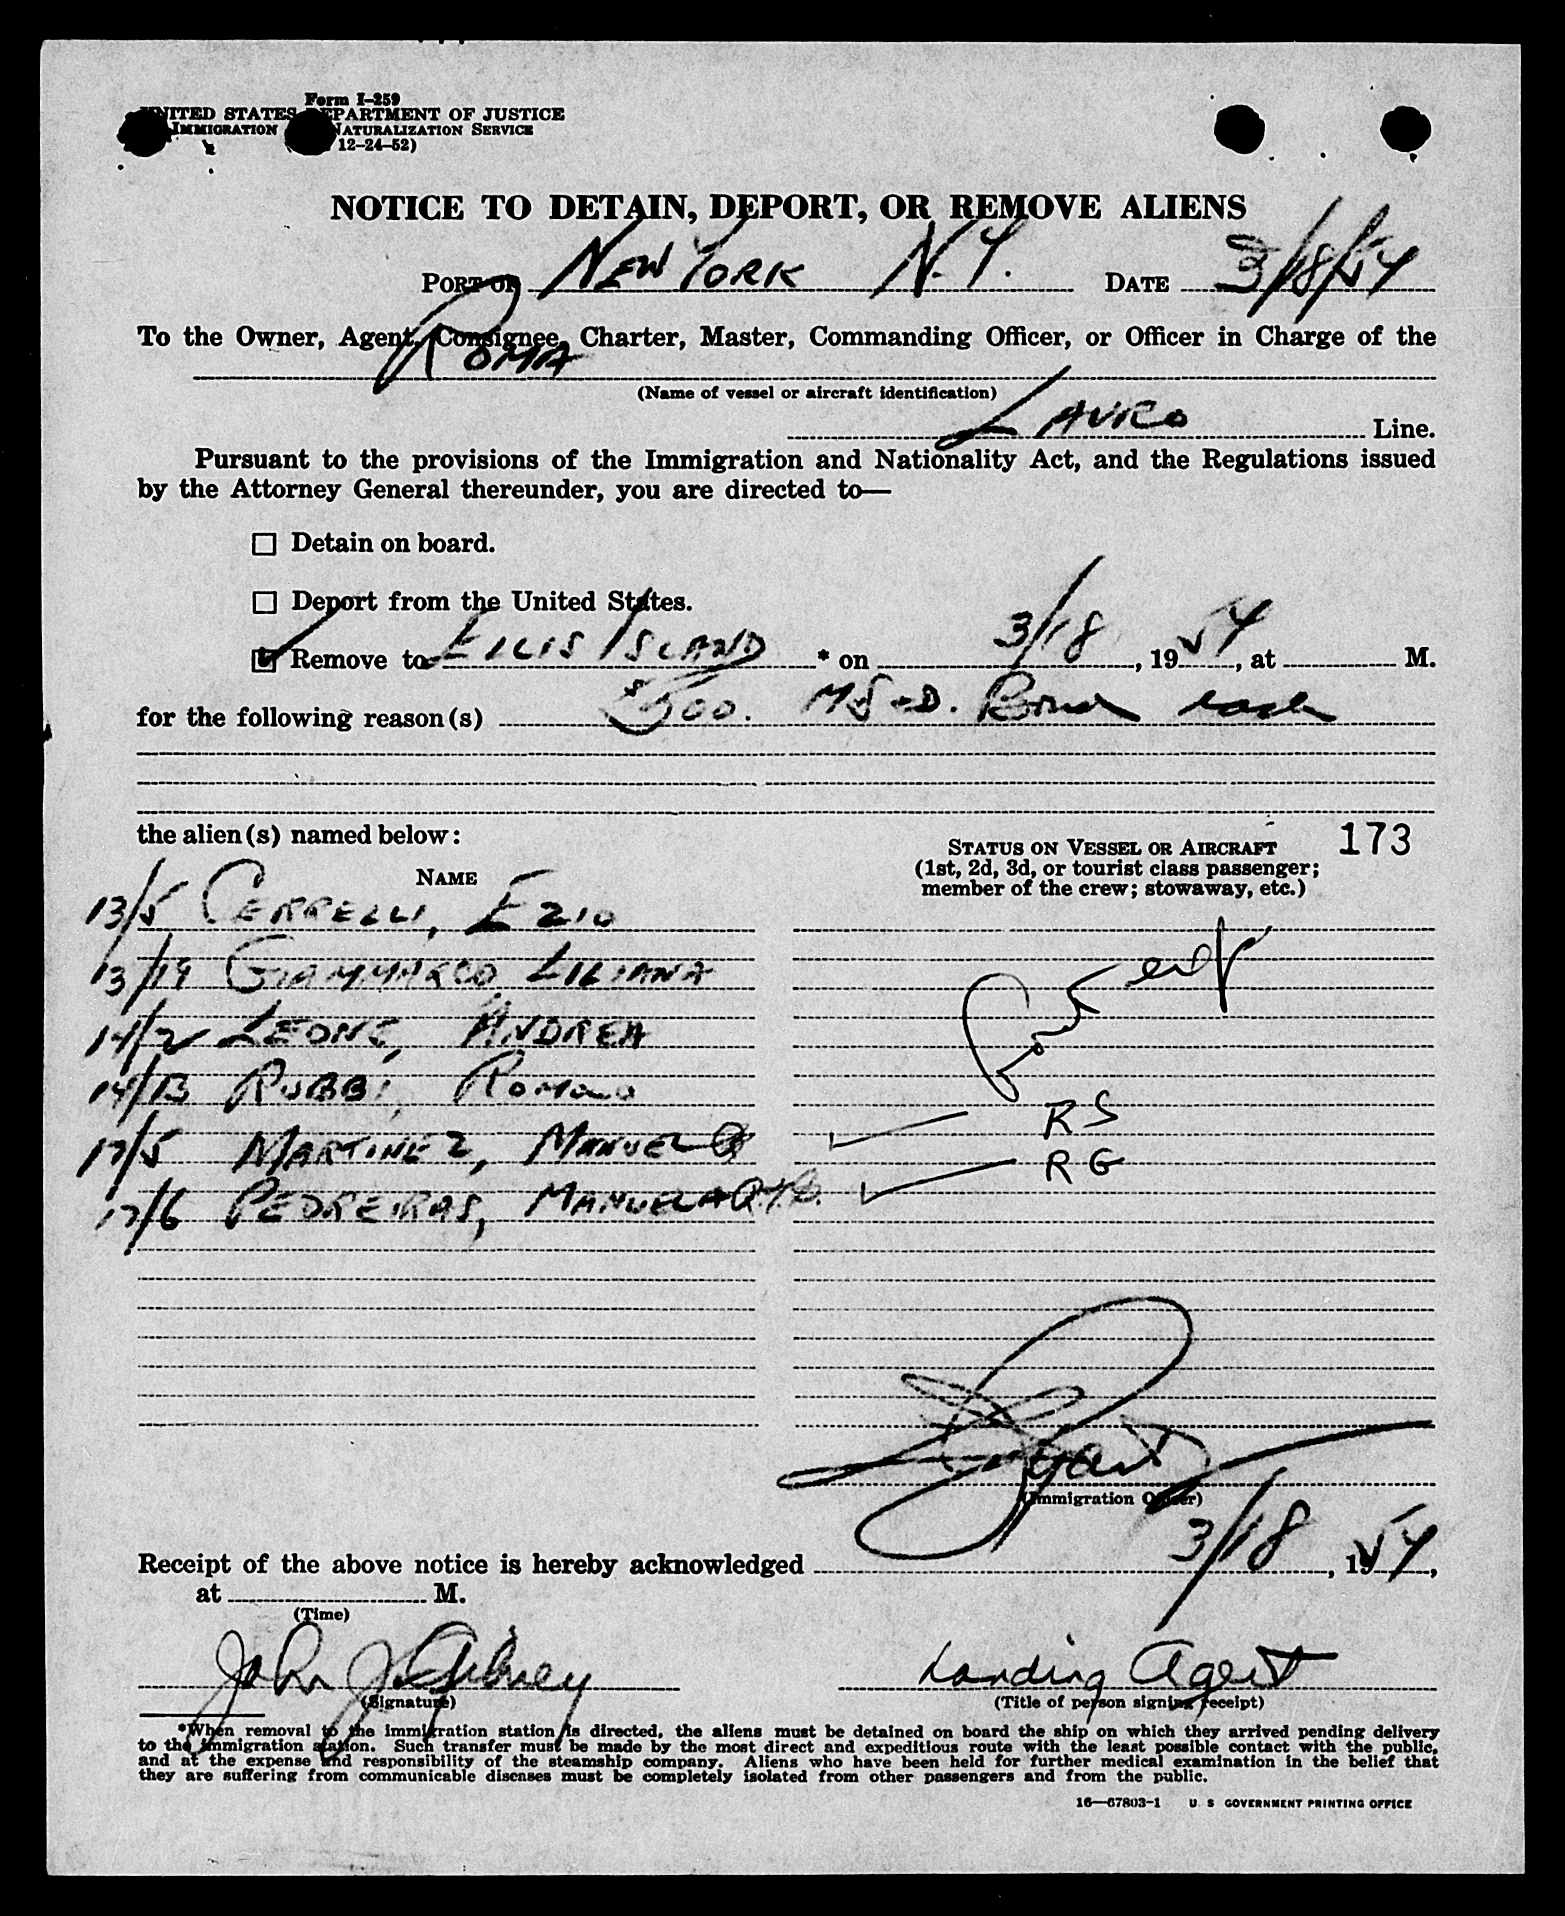 Form I-259
UNITED STATES DEPARTMENT OF JUSTICE
IMMIGRATION NATURALIZATION SERVICE
12-24-52)
NOTICE TO DETAIN, DEPORT, OR REMOVE ALIENS
PORT OF NEW YORK N.Y. DATE 3/18/54
To the Owner, Agent, Consignee, Charter, Master, Commanding Officer, or Officer in Charge of the
ROMA
(Name of vessel or aircraft identification)
LAURO Line.
Pursuant to the provisions of the Immigration and Nationality Act, and the Regulations issued
by the Attorney General thereunder, you are directed to—
☐ Detain on board.
☐ Deport from the United States.
☑ Remove to ELLIS ISLAND * on 3/18, 1954, at M.
for the following reason(s) $500. Bond each
the alien(s) named below:
STATUS ON VESSEL OR AIRCRAFT 173
NAME
(1st, 2d, 3d, or tourist class passenger;
member of the crew; stowaway, etc.)
13/5 CERRELLI, EZIO
13/19 GIAMMARCO, LILIANA
14/2 LEONE, ANDREA
14/13 RUBBI, ROMOLO
17/5 MARTINEZ, MANUEL RS
17/6 PEDREIRAS, MANUELA RG
(Immigration Officer)
Receipt of the above notice is hereby acknowledged 3/18, 1954,
at M.
(Time)
John J. Gibney Landing Agent
(Signature) (Title of person signing receipt)
*When removal to the immigration station is directed, the aliens must be detained on board the ship on which they arrived pending delivery
to the immigration station. Such transfer must be made by the most direct and expeditious route with the least possible contact with the public,
and at the expense and responsibility of the steamship company. Aliens who have been held for further medical examination in the belief that
they are suffering from communicable diseases must be completely isolated from other passengers and from the public.
16—67803-1 U S GOVERNMENT PRINTING OFFICE